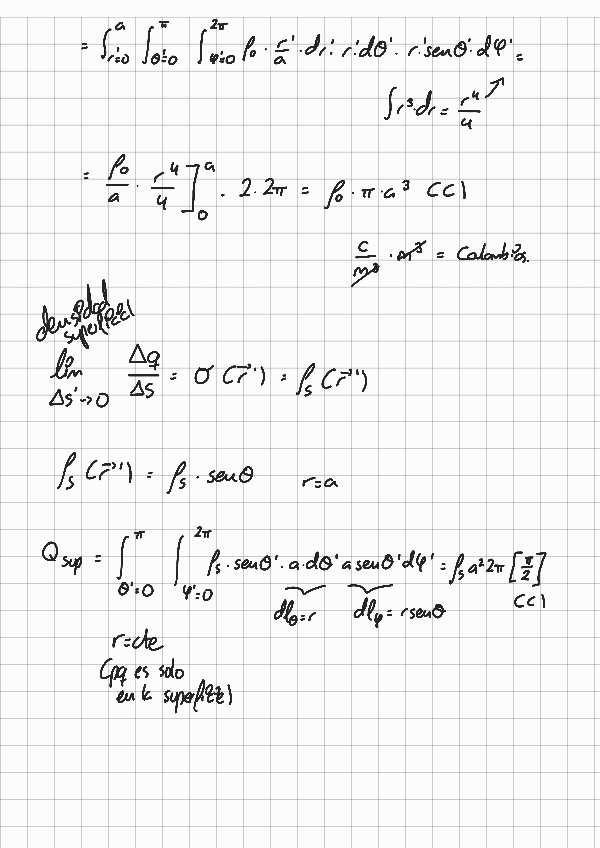 = ∫_{r'=0}^{a} ∫_{θ'=0}^{π} ∫_{φ'=0}^{2π} ρ₀ · r'/a · dr' · r'dθ' · r'senθ' · dφ' =
∫r³·dr = r⁴/4
= ρ₀/a · r⁴/4 ]₀^a · 2 · 2π = ρ₀ · π · a³ (C)
C/m³ · m³ = Culombios.
densidad
superficial
lim_{Δs'→0} Δq/Δs = σ(r⃗') = ρ_s(r⃗')
ρ_s(r⃗') = ρ_s · senθ r=a
Q_sup = ∫_{θ'=0}^{π} ∫_{φ'=0}^{2π} ρ_s · senθ' · a·dθ' a senθ' dφ' = ρ_s a² 2π [π/2]
(C)
dl_θ=r dl_φ=rsenθ
r=cte
(pq es solo
en la superficie)